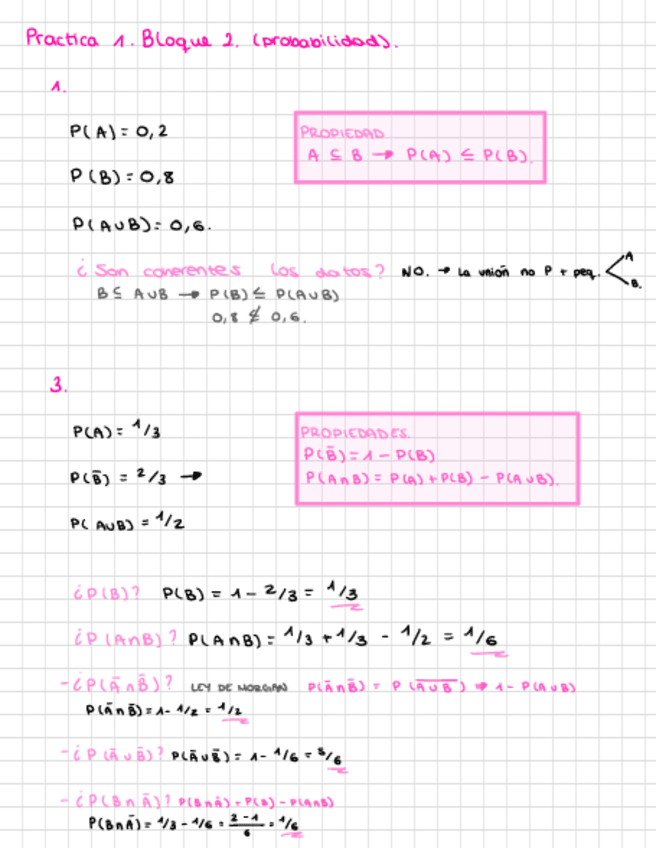 Practica 1. Bloque 2. (probabilidad).
1.
P(A) = 0,2
PROPIEDAD
A ⊆ B → P(A) ≤ P(B).
P(B) = 0,8
P(A∪B) = 0,6.
¿Son coherentes los datos? NO. → La unión no P + peq. < A B.
B ⊆ A∪B → P(B) ≤ P(A∪B)
0,8 ≰ 0,6.
3.
P(A) = 1/3
PROPIEDADES.
P(B̄) = 1 - P(B)
P(B̄) = 2/3 →
P(A∩B) = P(A) + P(B) - P(A∪B).
P(A∪B) = 1/2
¿P(B)? P(B) = 1 - 2/3 = 1/3
¿P(A∩B)? P(A∩B) = 1/3 + 1/3 - 1/2 = 1/6
- ¿P(Ā∩B̄)? LEY DE MORGAN P(Ā∩B̄) = P(A̅∪̅B̅) → 1 - P(A∪B)
P(Ā∩B̄) = 1 - 1/2 = 1/2
- ¿P(Ā∪B̄)? P(Ā∪B̄) = 1 - 1/6 = 5/6
- ¿P(B∩Ā)? P(B∩Ā) = P(B) - P(A∩B)
P(B∩Ā) = 1/3 - 1/6 = 2-1/6 = 1/6